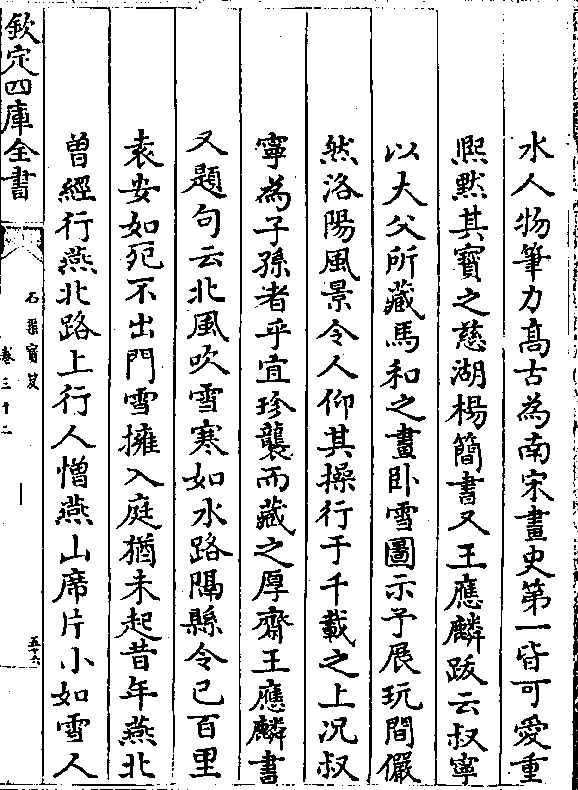 水人物筆力髙古為南宋畫史第一皆可愛重
熈黙其寶之慈湖楊簡書又王應麟跋云叔寧
以大父所藏馬和之畫卧雪圖示予展玩間儼
然洛陽風景令人仰其操行于千載之上况叔
寧為子孫者乎宜珍襲而藏之厚齋王應麟書
又題句云北風吹雪寒如水路隔縣令已百里
袁安如死不出門雪擁入庭猶未起昔年燕北
曽經行燕北路上行人憎燕山席片小如雪人
欽定四庫全書
石渠寶笈
卷三十二
五十六